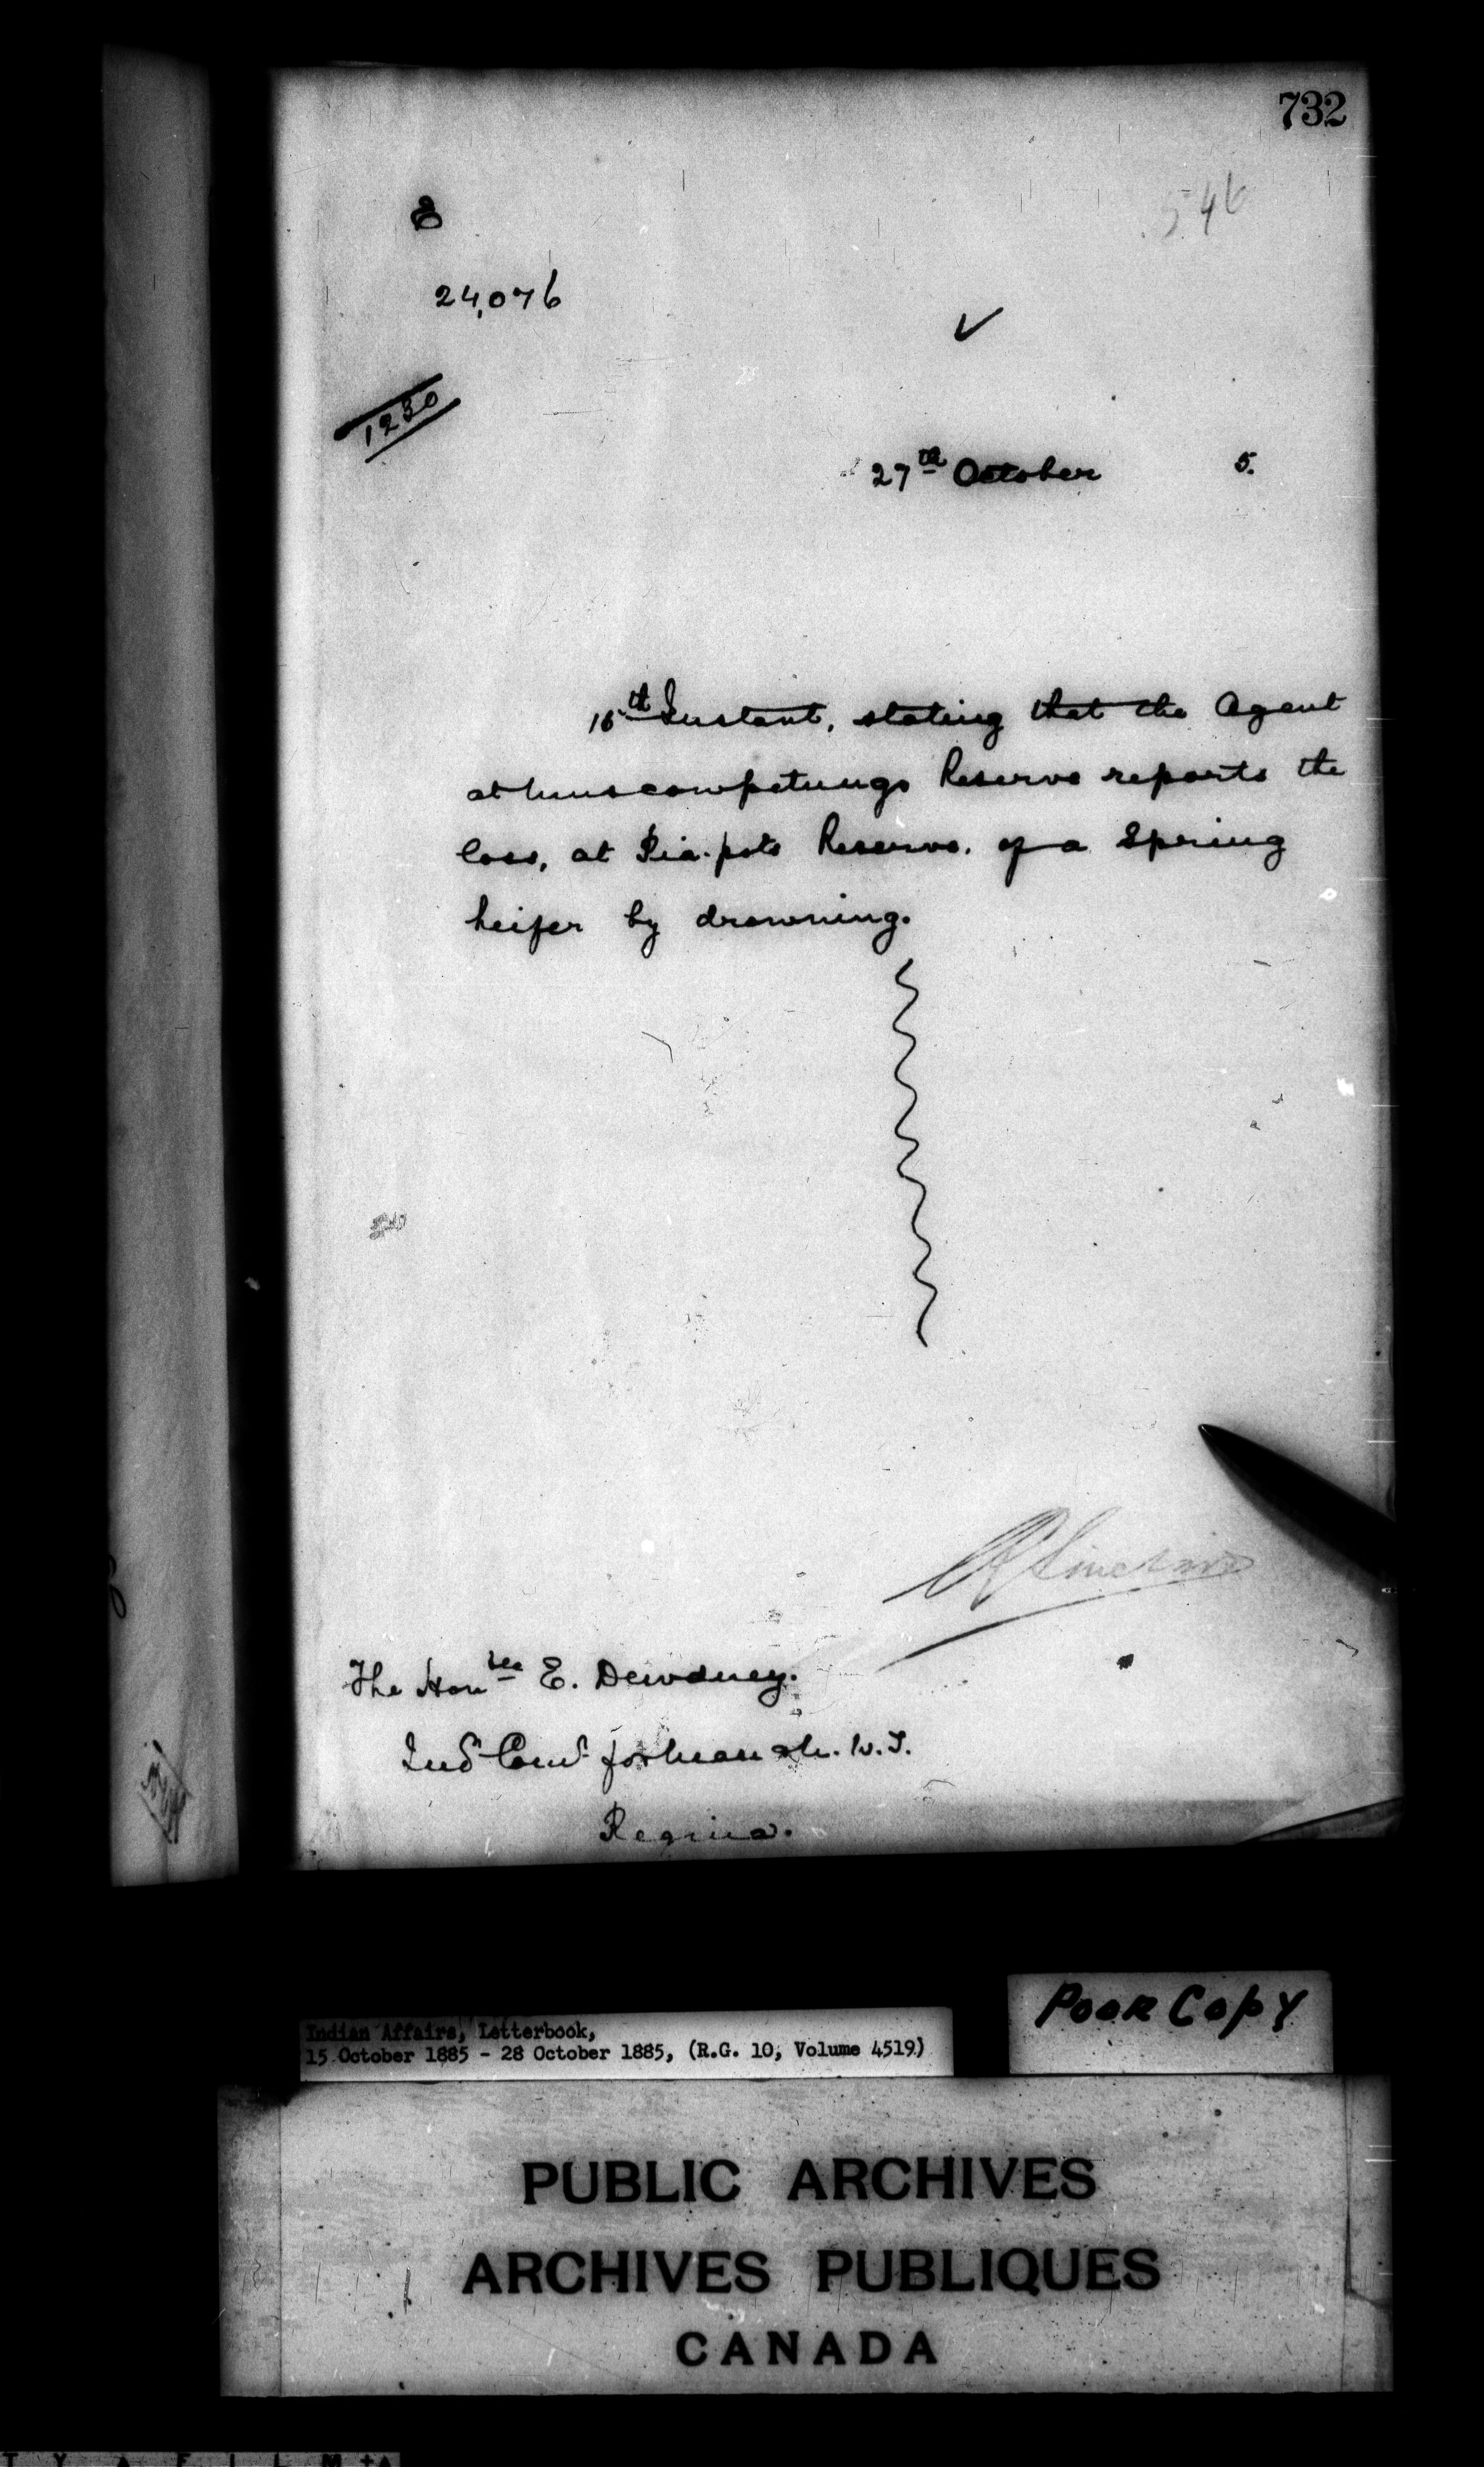 732
546
24,076
1230
27th October 5.
15th Instant, stating that the Agent
at Muscowpetungs Reserve reports the
loss, at Pia-pots Reserve, of a Spring
heifer by drowning.
The Honble E. Dewdney.
Ind Comr for Man & N.W.T.
Regina.
Indian Affairs, Letterbook,
15 October 1885 - 28 October 1885, (R.G. 10, Volume 4519)
Poor Copy
PUBLIC ARCHIVES
ARCHIVES PUBLIQUES
CANADA